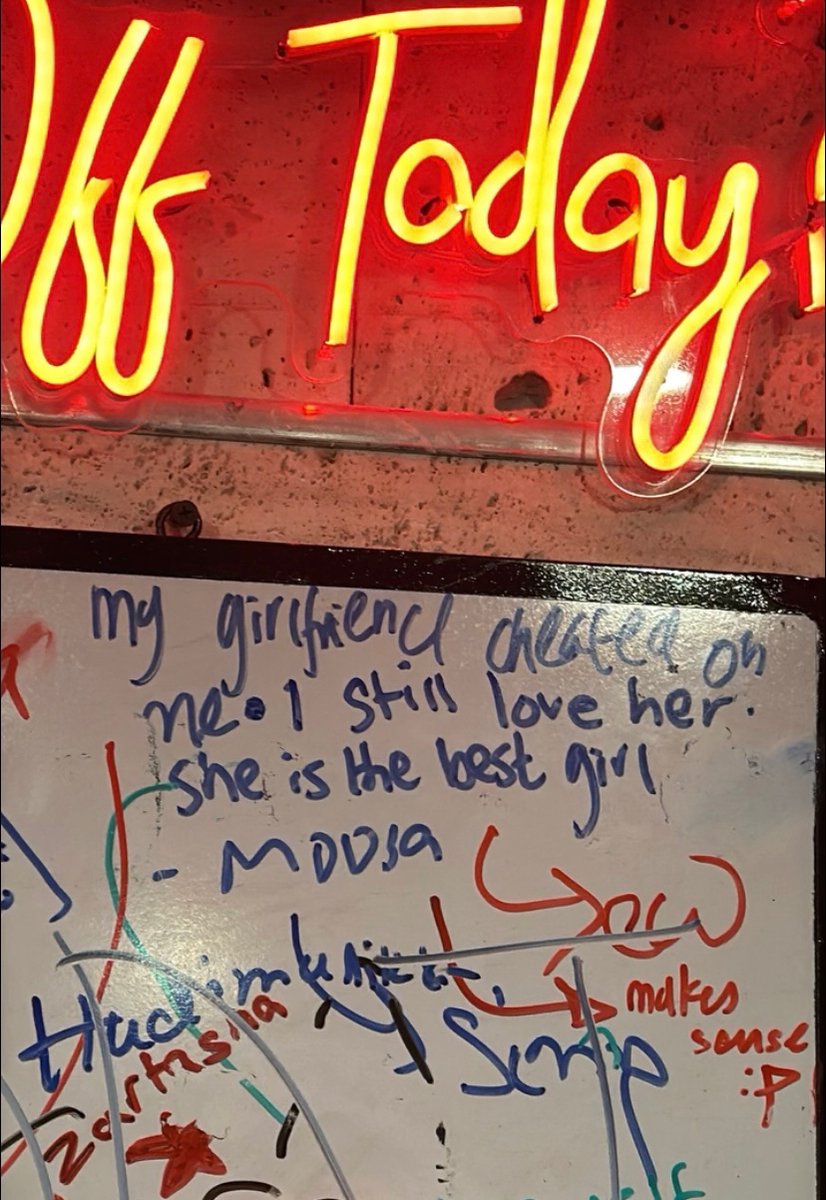 Off Today
my girlfriend cheated on
me. I still love her.
she is the best girl
- Moosa
makes
sense
:P
Simp
Zartasha